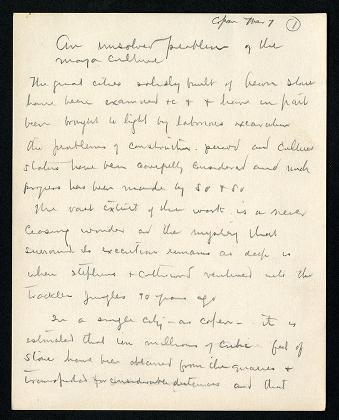 Copan Mar 7 1
An unsolved problem of the
maya culture
The great cities solidly built of hewn stone
have been examined +c + + have in part
been brought to light by laborious excavation
The problems of construction. period and culture
status have been carefully considered and much
progress has been made by so + so
The vast extent of the work is a never
ceasing wonder and the mystery that
surrounds its execution remains as deep as
when Stephens + Catherwood ventured into the
trackless jungles 90 years ago
In a single city - as Copan - it is
estimated that ten millions of cubic feet of
stone have been obtained from the quarries +
transported for considerable distances and that